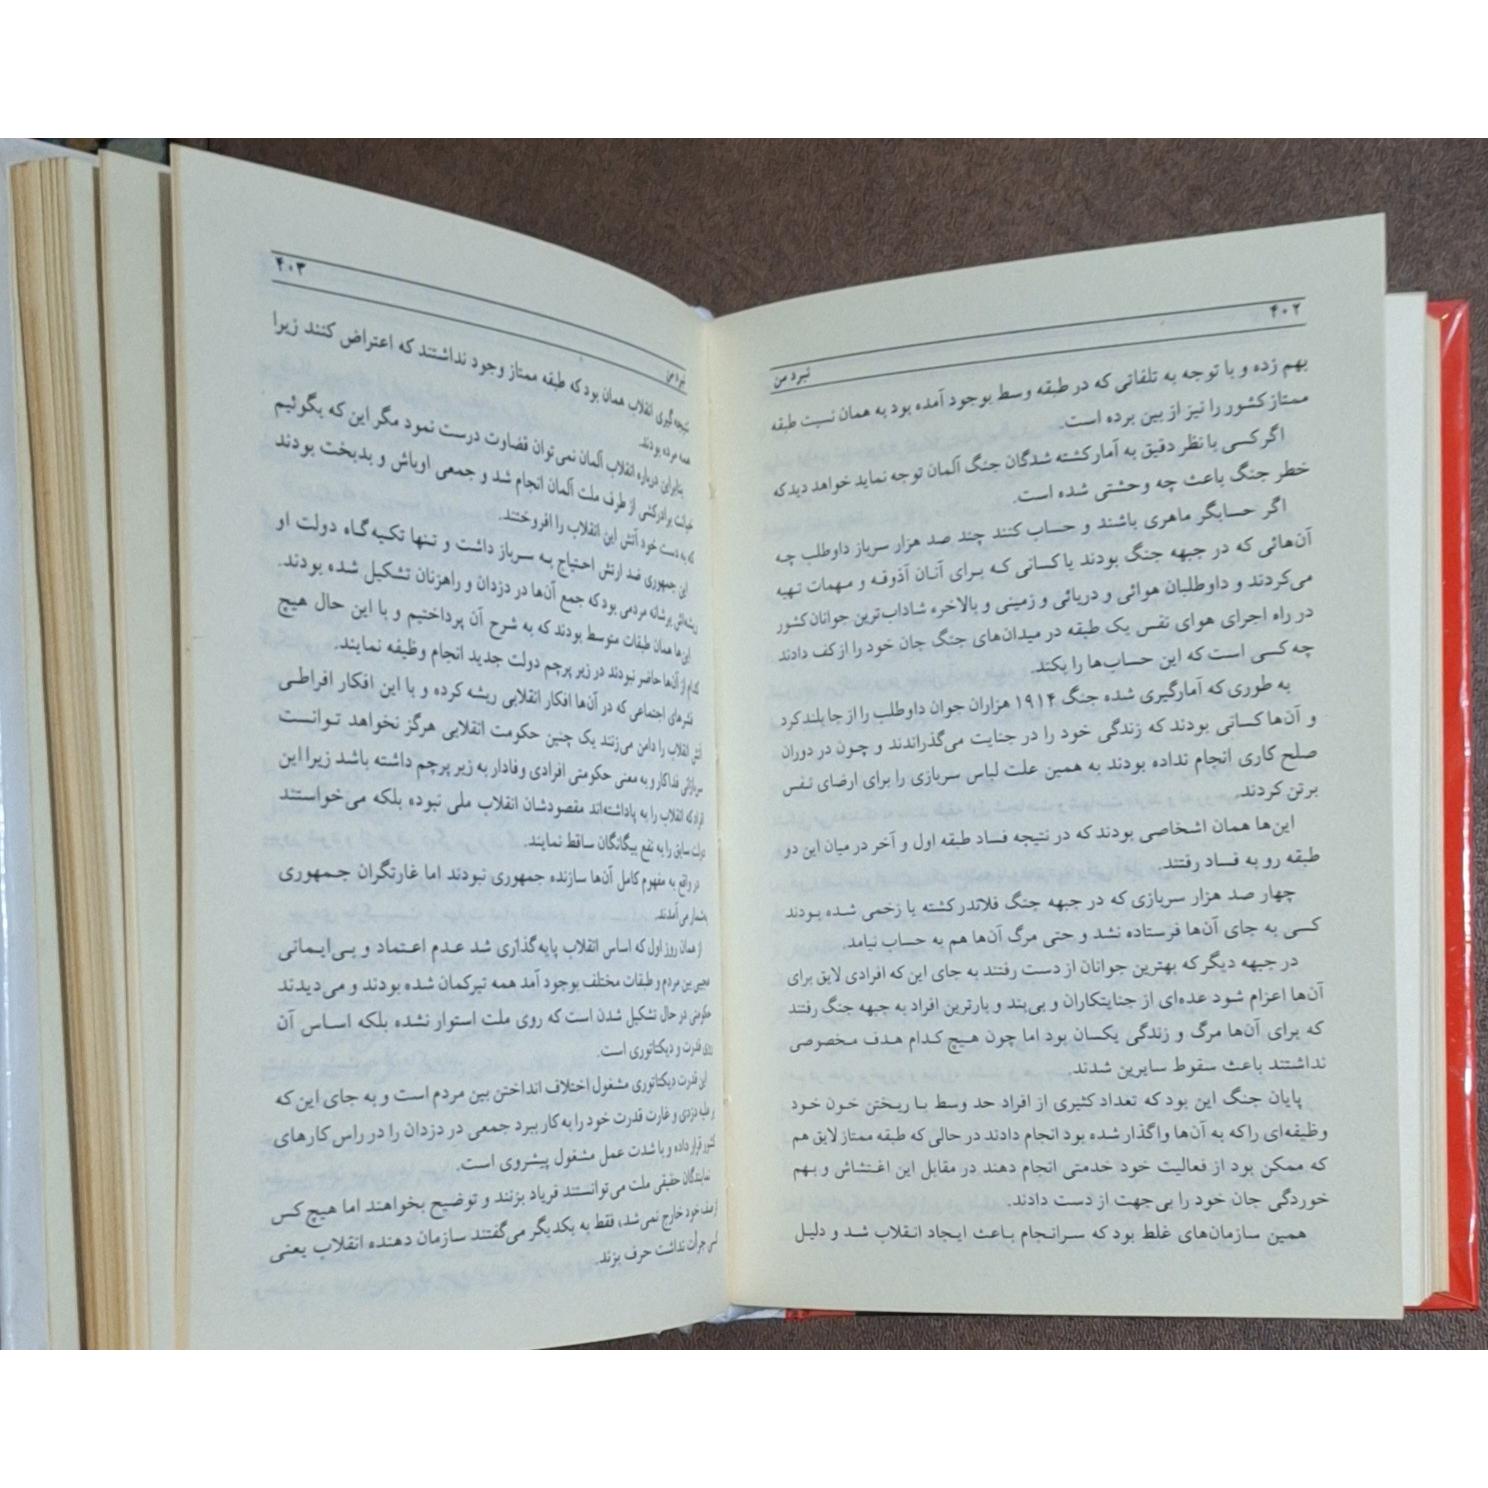 ۴۰۲
نبرد من
بهم زده و با توجه به تلفاتی که در طبقه وسط بوجود آمده بود به همان نسبت طبقه
ممتاز کشور را نیز از بین برده است.
اگر کسی با نظر دقیق به آمار کشته شدگان جنگ آلمان توجه نماید خواهد دید که
خطر جنگ باعث چه وحشتی شده است.
اگر حسابگر ماهری باشند و حساب کنند چند صد هزار سرباز داوطلب چه
آن‌هائی که در جبهه جنگ بودند یا کسانی که برای آنان آذوقه و مهمات تهیه
می‌کردند و داوطلبان هوائی و دریائی و زمینی و بالاخره شاداب‌ترین جوانان کشور
در راه اجرای هوای نفس یک طبقه در میدان‌های جنگ جان خود را از کف دادند
چه کسی است که این حساب‌ها را بکند.
به طوری که آمارگیری شده جنگ ۱۹۱۴ هزاران جوان داوطلب را از جا بلند کرد
و آن‌ها کسانی بودند که زندگی خود را در جنایت می‌گذراندند و چون در دوران
صلح کاری انجام نداده بودند به همین علت لباس سربازی را برای ارضای نفس
برتن کردند.
این‌ها همان اشخاصی بودند که در نتیجه فساد طبقه اول و آخر در میان این دو
طبقه رو به فساد رفتند.
چهار صد هزار سربازی که در جبهه جنگ فلاندر کشته یا زخمی شده بودند
کسی به جای آن‌ها فرستاده نشد و حتی مرگ آن‌ها هم به حساب نیامد.
در جبهه دیگر که بهترین جوانان از دست رفتند به جای این که افرادی لایق برای
آن‌ها اعزام شود عده‌ای از جنایتکاران و بی‌بند و بارترین افراد به جبهه جنگ رفتند
که برای آن‌ها مرگ و زندگی یکسان بود اما چون هیچ کدام هدف مخصوصی
نداشتند باعث سقوط سایرین شدند.
پایان جنگ این بود که تعداد کثیری از افراد حد وسط با ریختن خون خود
وظیفه‌ای را که به آن‌ها واگذار شده بود انجام دادند در حالی که طبقه ممتاز لایق هم
که ممکن بود از فعالیت خود خدمتی انجام دهند در مقابل این اغتشاش و بهم
خوردگی جان خود را بی‌جهت از دست دادند.
همین سازمان‌های غلط بود که سرانجام باعث ایجاد انقلاب شد و دلیل
۴۰۳
نبرد من
نتیجه‌گیری انقلاب همان بود که طبقه ممتاز وجود نداشتند که اعتراض کنند زیرا
همه مرده بودند.
بنابراین درباره انقلاب آلمان نمی‌توان قضاوت درست نمود مگر این که بگوئیم
خیانت برادرکشی از طرف ملت آلمان انجام شد و جمعی اوباش و بدبخت بودند
که به دست خود آتش این انقلاب را افروختند.
این جمهوری ضد ارتش احتیاج به سرباز داشت و تنها تکیه‌گاه دولت او
مردمی بود که جمع آن‌ها در دزدان و راهزنان تشکیل شده بودند.
این‌ها همان طبقات متوسط بودند که به شرح آن پرداختیم و با این حال هیچ
کدام از آن‌ها حاضر نبودند در زیر پرچم دولت جدید انجام وظیفه نمایند.
قشرهای اجتماعی که در آن‌ها افکار انقلابی ریشه کرده و با این افکار افراطی
آتش انقلاب را دامن می‌زنند یک چنین حکومت انقلابی هرگز نخواهد توانست
سربازانی فداکار و به معنی حکومتی افرادی وفادار به زیر پرچم داشته باشد زیرا این
افراد که انقلاب را به پا داشته‌اند مقصودشان انقلاب ملی نبوده بلکه می‌خواستند
دولت سابق را به نفع بیگانگان ساقط نمایند.
در واقع به مفهوم کامل آن‌ها سازنده جمهوری نبودند اما غارتگران جمهوری
بشمار می‌آمدند.
از همان روز اول که اساس انقلاب پایه‌گذاری شد عدم اعتماد و بی‌ایمانی
عجیبی بین مردم و طبقات مختلف بوجود آمد همه تیرکمان شده بودند و می‌دیدند
حکومتی در حال تشکیل شدن است که روی ملت استوار نشده بلکه اساس آن
روی قدرت و دیکتاتوری است.
این قدرت دیکتاتوری مشغول اختلاف انداختن بین مردم است و به جای این که
بر علیه دزدی و غارت قدرت خود را به کار ببرد جمعی در دزدان را در راس کارهای
کشور قرار داده و با شدت عمل مشغول پیشروی است.
نمایندگان حقیقی ملت می‌توانستند فریاد بزنند و توضیح بخواهند اما هیچ کس
از صف خود خارج نمی‌شد، فقط به یکدیگر می‌گفتند سازمان دهنده انقلاب یعنی
کسی جرأت نداشت حرف بزند.